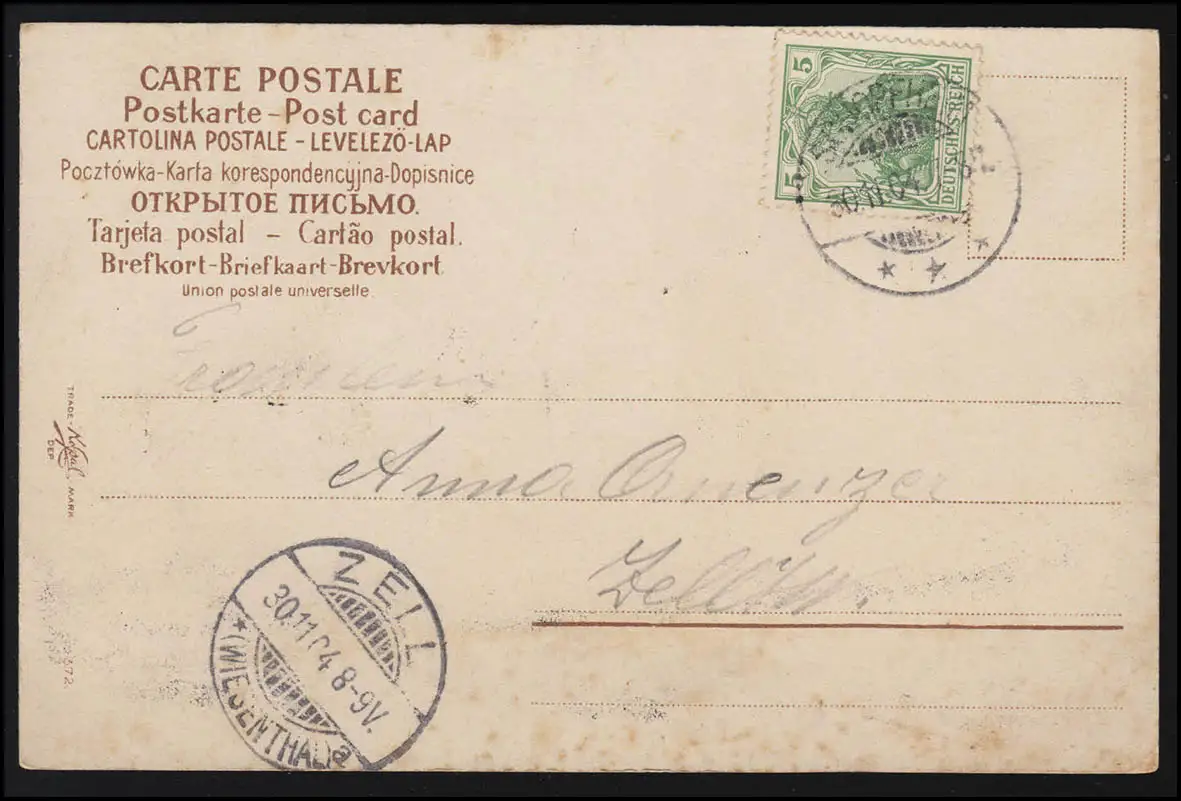 CARTE POSTALE
Postkarte-Post card
CARTOLINA POSTALE - LEVELEZŐ-LAP
Pocztówka-Karta korespondencyjna-Dopisnice
ОТКРЫТОЕ ПИСЬМО.
Tarjeta postal - Cartão postal.
Brefkort-Briefkaart-Brevkort
Union postale universelle.
5 5 DEUTSCHES REICH
30.11.04
TRADE- MARK
DEP
Anna
Zell
ZELL
30.11.04 8-9V.
* (WIESENTHAL) a